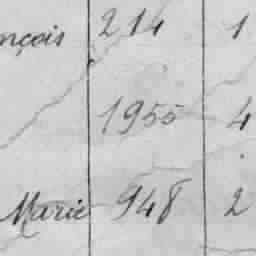 nçois 214 1
1955 4
Marie 948 2